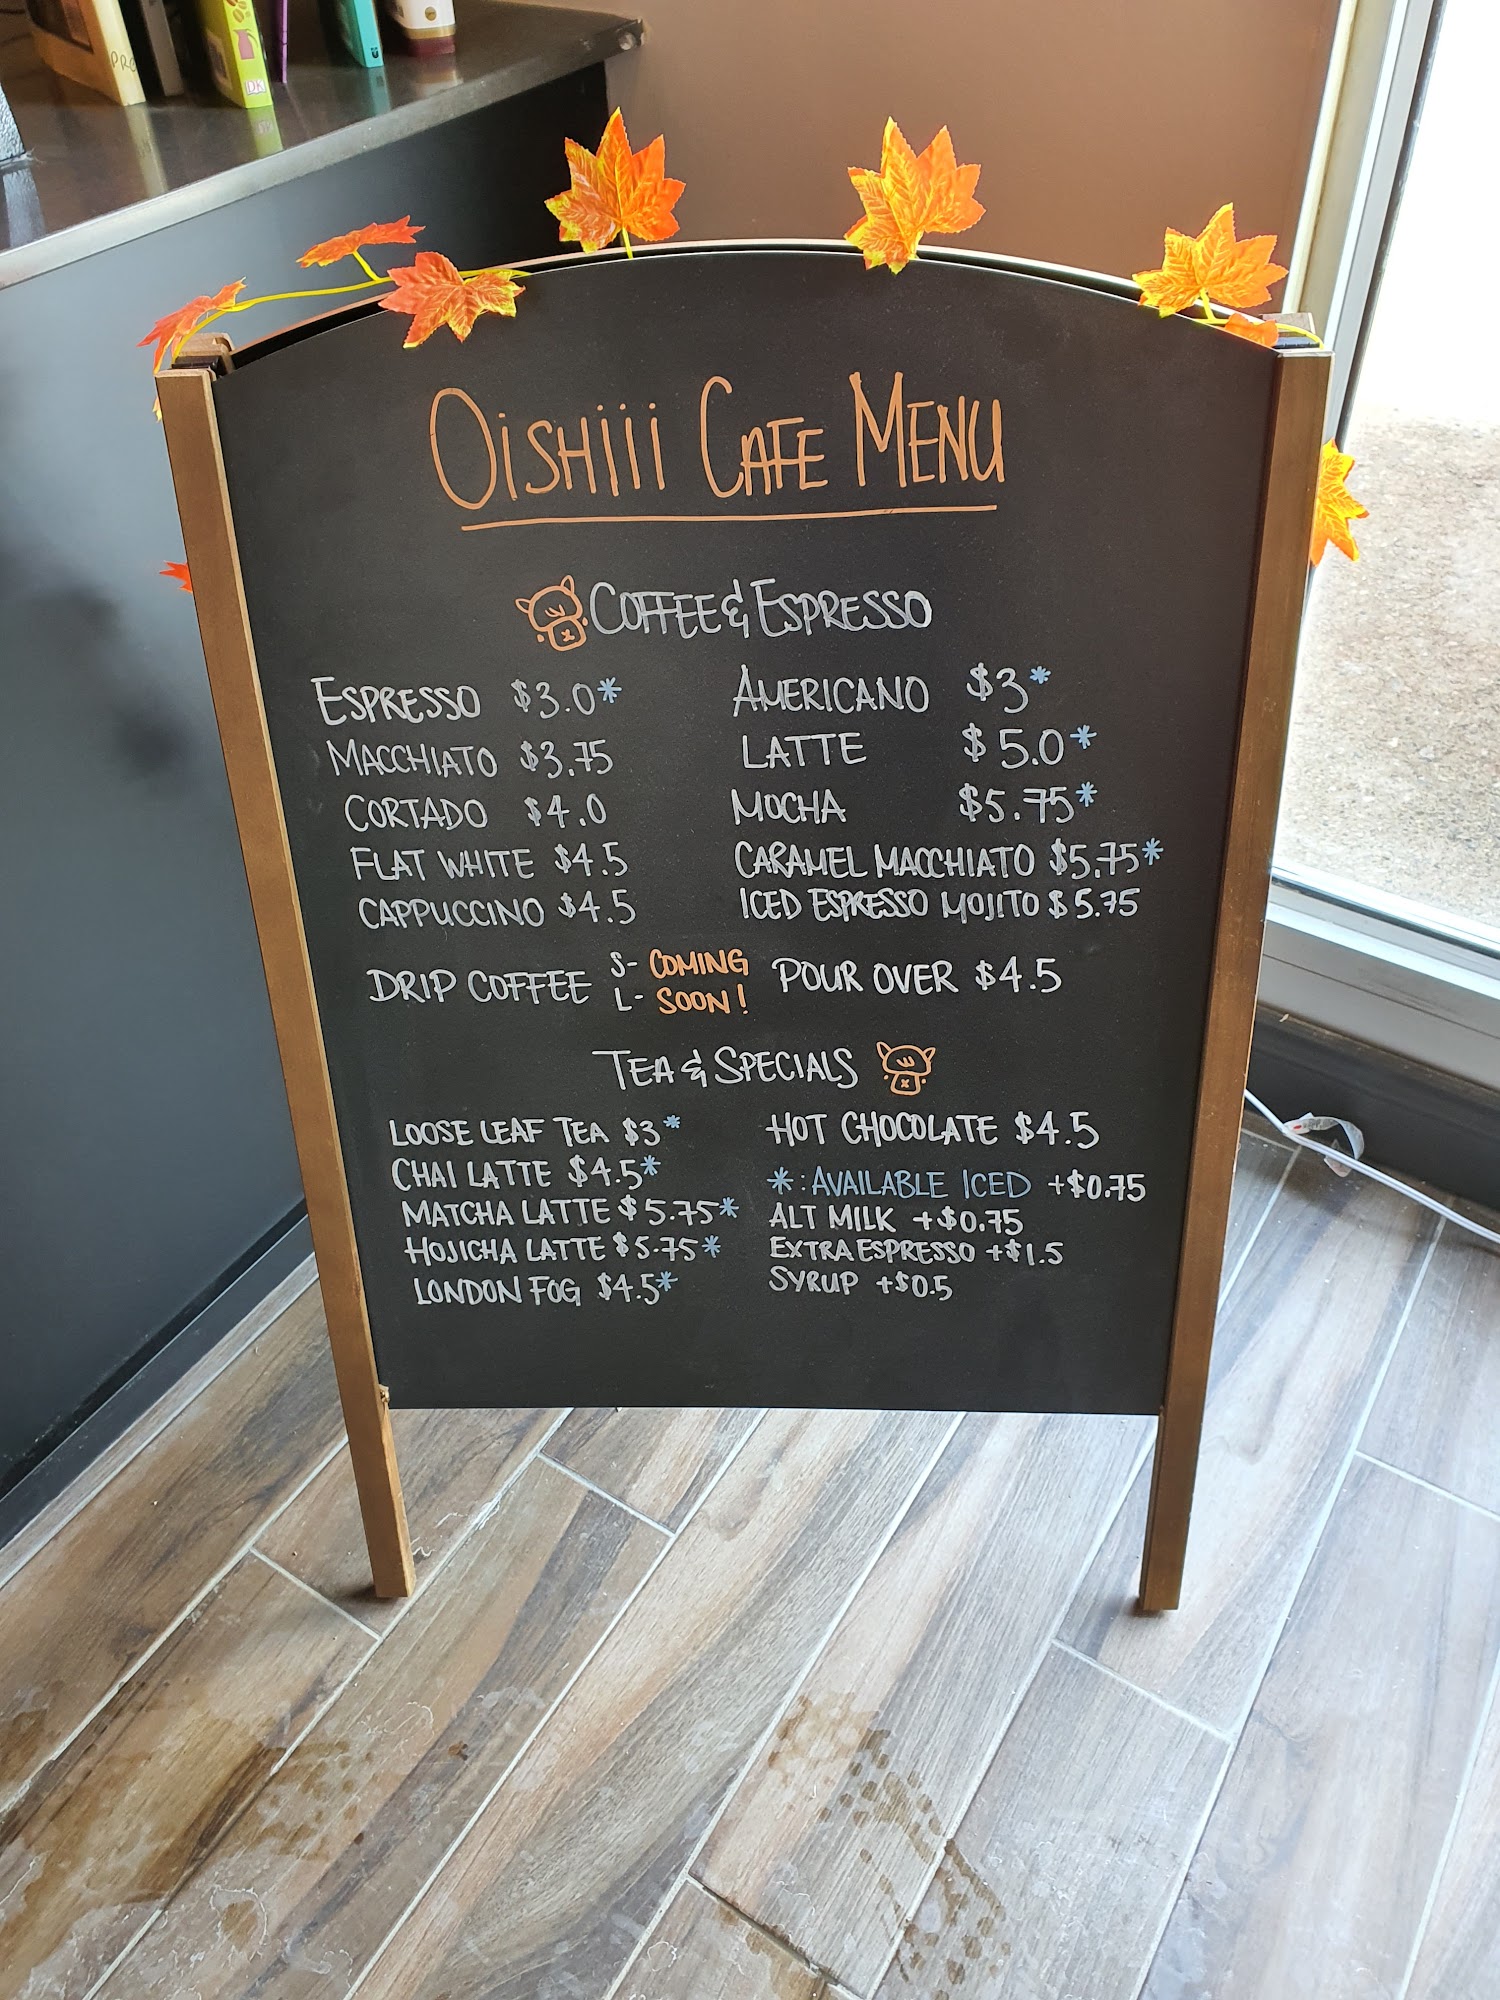 PRO
DK
OiSHiii CAFE MENU
COFFEE & ESPRESSO
ESPRESSO $3.0*
MACCHIATO $3.75
CORTADO $4.0
FLAT WHITE $4.5
CAPPUCCINO $4.5
AMERICANO $3*
LATTE $5.0*
MOCHA $5.75*
CARAMEL MACCHIATO $5.75*
ICED ESPRESSO MOJITO $5.75
DRIP COFFEE S- COMING
L- SOON!
POUR OVER $4.5
TEA & SPECIALS
LOOSE LEAF TEA $3*
CHAI LATTE $4.5*
MATCHA LATTE $5.75*
HOJICHA LATTE $5.75*
LONDON FOG $4.5*
HOT CHOCOLATE $4.5
*: AVAILABLE ICED +$0.75
ALT MILK +$0.75
EXTRA ESPRESSO +$1.5
SYRUP +$0.5